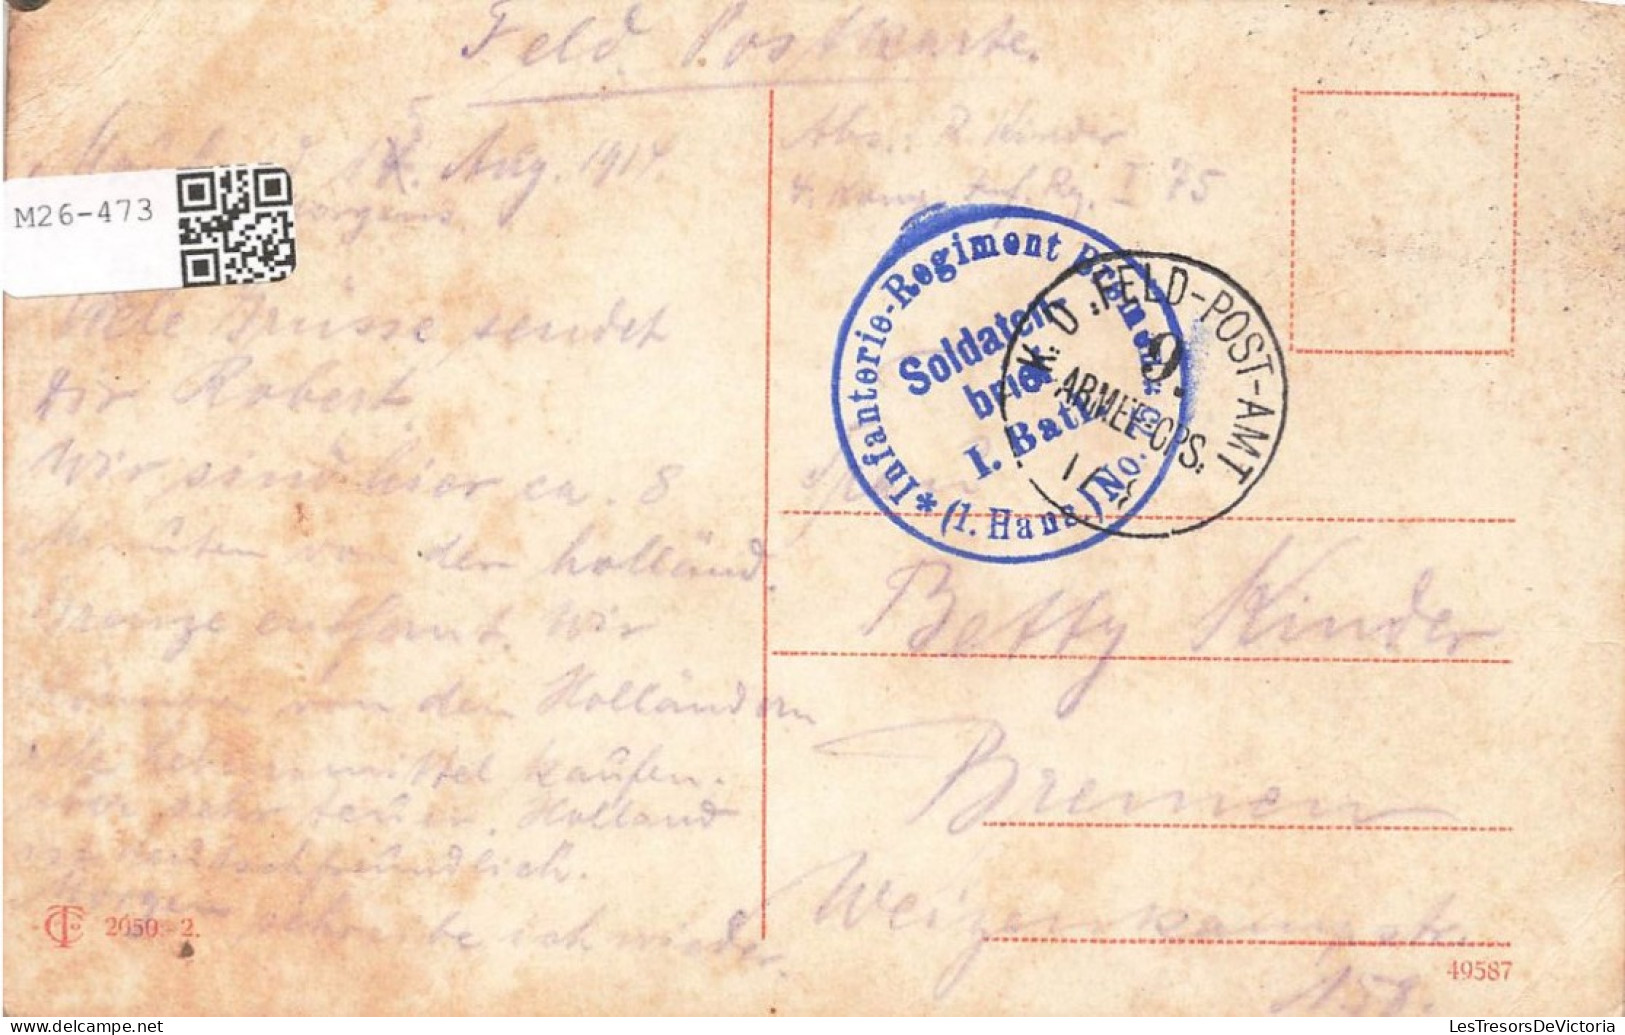 Feld Postkarte.
Aug. 1914.
Morgens
Viele Grüsse sendet
dir Robert.
Wir sind hier ca. 8
Minuten von der holländ.
Grenze entfernt. Wir
können von den Holländern
Lebensmittel kaufen.
aber sehr teuer. Holland
ist deutschfreundlich.
Morgen schreibe ich wieder.
2050.-2.
M26-473
Abs.: R. Kinder
4. Komp. Inf. Rg. I 75
*Infanterie-Regiment Bremen
(1. Hans.) No.
Soldaten-
brief
I. Batl.
K. D. FELD-POST-AMT
9.
ARMEE-CPS.
Betty Kinder
Bremen
Weizenkampstr.
158.
49587
LesTresorsDeVictoria